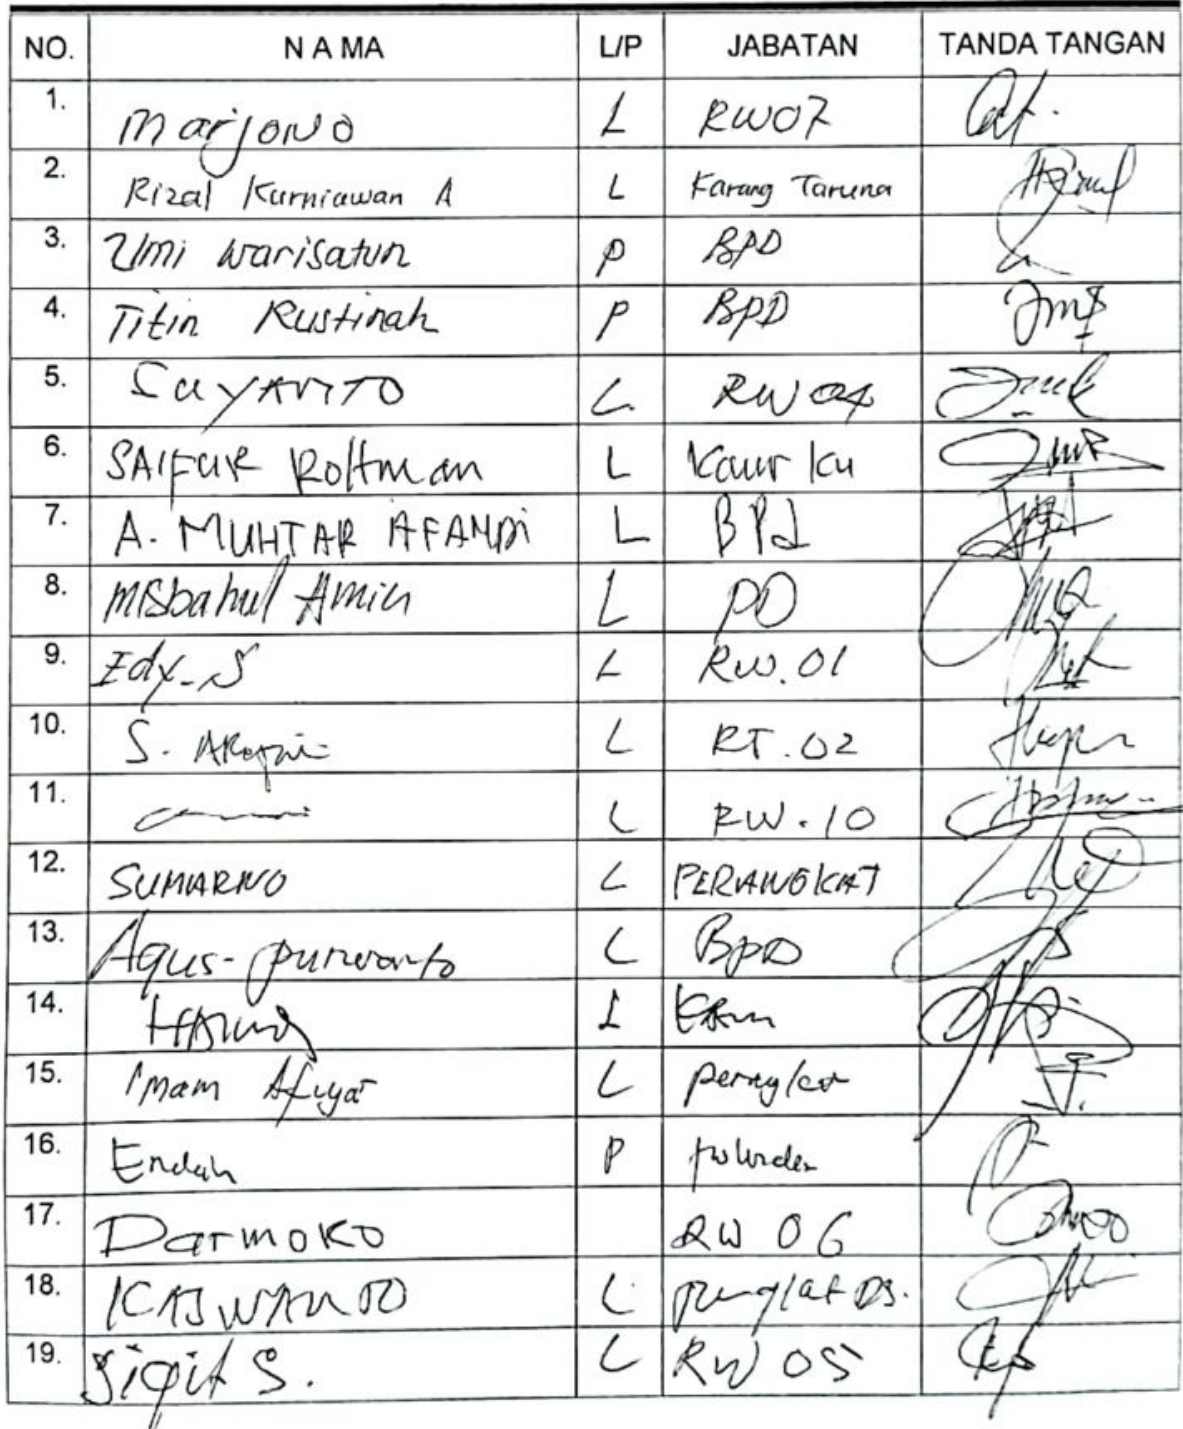 NO. N A M A L/P JABATAN TANDA TANGAN
1. Marjono L RW07
2. Rizal Kurniawan A L Karang Taruna
3. Umi Warisatun P BPD
4. Titin Rustinah P BPD
5. SuyANTO L RW 04
6. SAIFUR Rohman L Kaur Ku
7. A. MUHTAR AFANDi L BPd
8. Misbahul Amin L PD
9. Edy. S L RW. 01
10. S. L RT. 02
11. L RW. 10
12. SUMARNO L PERANGKAT
13. Agus-purwanto L BpD
14. L
15. Imam L
16. Endah P
17. Darmoko RW 06
18. KASWANTO L
19. Sigit S. L RW 05